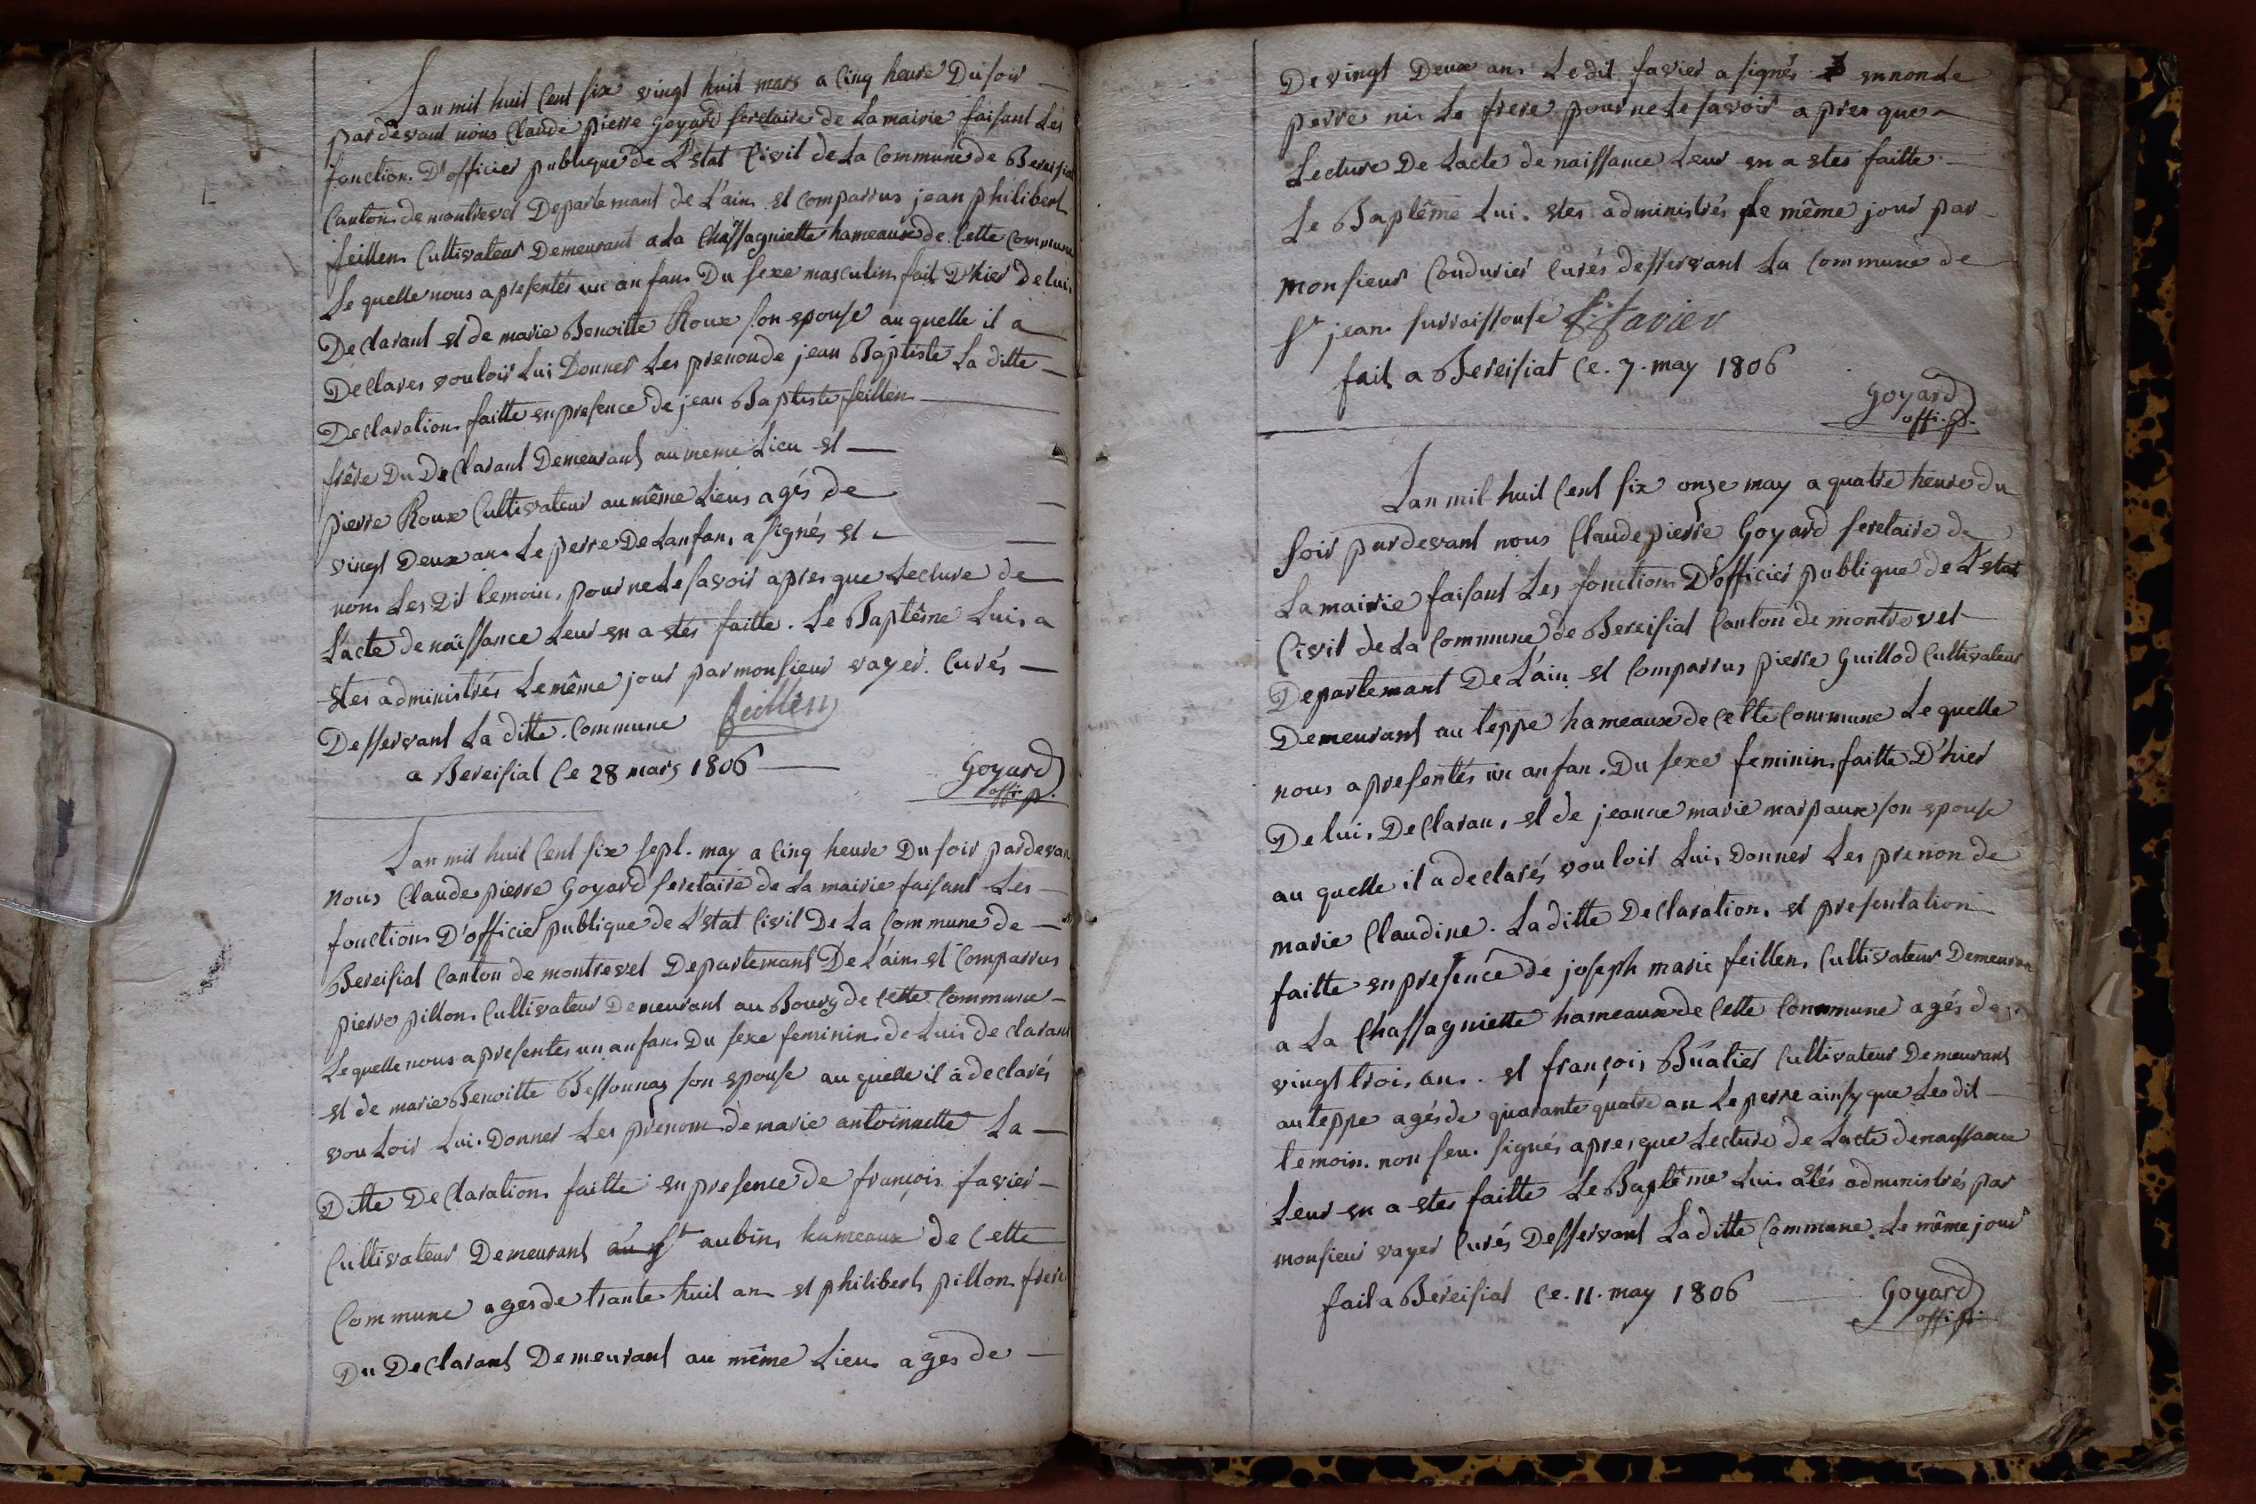 Lan mil huit Cent six vingt huit mars a Cinq heure Du soir
pardevant nous Claude pierre Goyard secretaire de La mairie faisant Les
fonction D'officier publique de L'Etat Civil de La Commune de Bereisiat
Canton de montrevel Departemant de L'ain et Comparrus jean philibert
feillen Cultivateur Demeurant a La Chassagniette hameaux de Cette Commune
Le quelle nous a presentés un anfan Du sexe masculin fait D'hier de lui
Declarant et de marie Benoitte Roux son epouse au quelle il a
Declares vouloir Lui Donner Les prenon de jean Baptiste La ditte
Declaration faitte en presence de jean Baptiste feillen
frêre Du Declarant Demeurant au meme Lieu et
pierre Roux Cultivateur au même Lieu agés de
vingt Deux an Le perre De Lanfan a signés et
non Les Dit temoin, pour ne Le savoir apres que Lecture de
L'acte de naissance Leur en a etés faitte. Le Baptême Lui a
etes administrés Le même jour par monsieur vayer Curés
Desservant La ditte Commune feillen
a Bereisiat Ce 28 mars 1806
Goyard
offi. p.
Lan mil huit Cent six sept. may a Cinq heure Du soir pardevan
nous Claude pierre Goyard seretaire de La mairie faisant Les
fonction D'officier publique de L'Etat Civil De La Commune de
Bereisiat Canton de montrevel Departemant De L'ain et Comparrus
pierre pillon Cultivateur Demeurant au Bourg de Cette Commune
Le quelle nous a presentes un anfan Du sexe feminin de Lui declarant
et de marie Benoitte Bessonnaz son epouse au quelle il a declarés
vouloir Lui Donner Les prenom de marie antoinette La
Ditte Declaration faitte en presence de françois favier
Cultivateur Demeurant au St aubin hameaux de Cette
Commune ages de trante huit an et philibert pillon frere
Du Declarant Demeurant au même Lieu ages de
De vingt Deux an Le dit favier a signés en non Le
perre ni Le frere pour ne Le savoir apres que
Lecture De Lacte de naissance Leur en a etes faitte
Le Baptême Lui etes administrés Le même jour par
monsieur Condurier Curés desservant La Commune de
St jean surraissouse f. favier
fait a Bereisiat Ce. 7. may 1806
Goyard
offi. p.
Lan mil huit Cent six onze may a quatre heure du
soir pardevant nous Claude pierre Goyard seretaire de
La mairie faisant Les fonction D'officier publique de L'Etat
Civil de La Commune de Bereisiat Canton de montrevel
Departemant De L'ain et Comparrus pierre Guillod Cultivateur
Demeurant au teppe hameaux de Cette Commune Le quelle
nous a presentés un anfan Du sexe feminin faitte D'hier
De lui Declaran, et de jeanne marie marpaux son epouse
au quelle il a declarés vouloir Lui Donner Les prenon de
marie Claudine. La ditte Declaration et presentation
faitte en presence de joseph marie feillen Cultivateur Demeuran
a La Chassagniette hameaux de Cette Commune agés de
vingt trois an. et françois Buatier Cultivateur Demeurant
au teppe agés de quarante quatre an Le perre ainsy que Les dit
temoin non seu signés apres que Lecture de Lacte de naissance
Leur en a etes faitte Le Baptême Lui a etés administrés par
monsieur vayer Curés Desservant La ditte Commune Le même jour
fait a Bereisiat Ce. 11. may 1806
Goyard
offi. p.